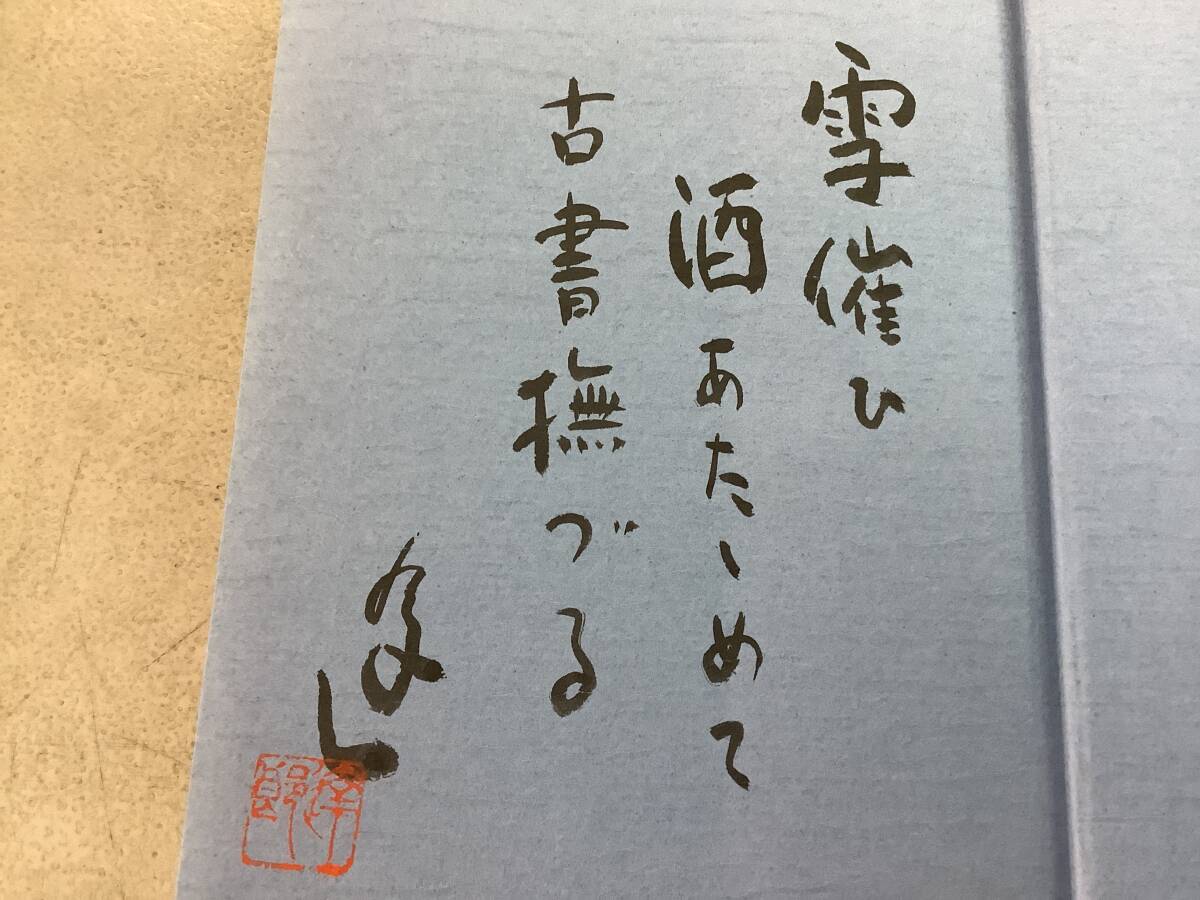 雪催ひ
酒あたゝめて
古書撫づる